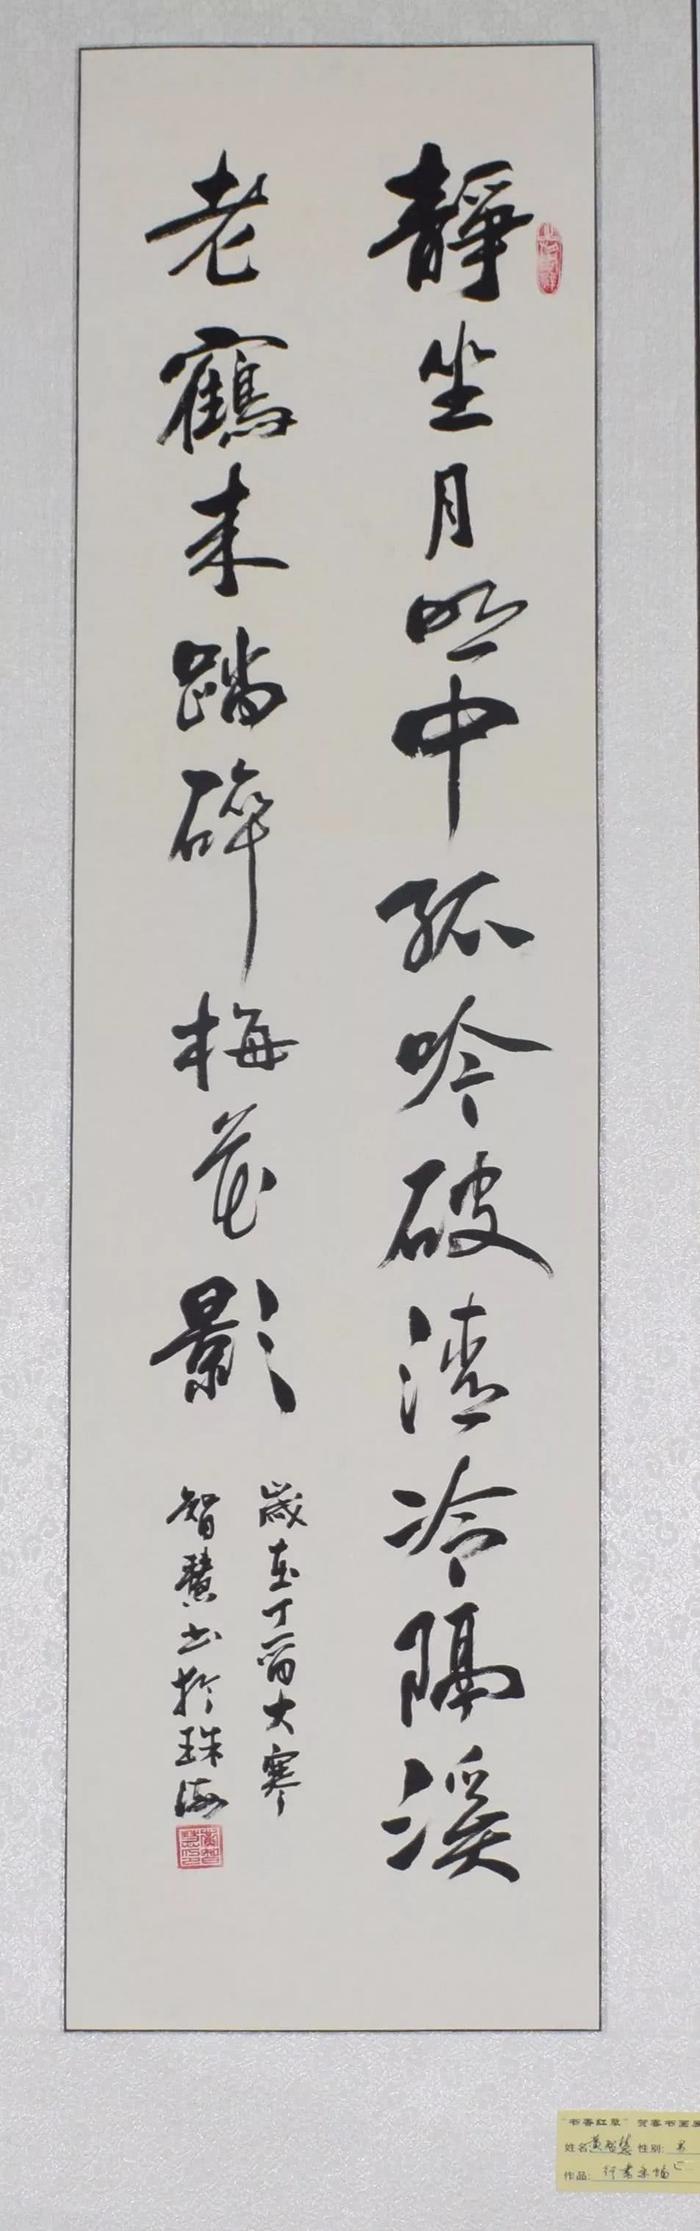 靜坐月明中孤吟破清冷隔溪
老鶴来踏碎梅花影
歲在丁酉大寒
智慧书於珠海
"书香红翠" 贺喜书画展
姓名黄智慧 性别: 男
作品: 行书条幅